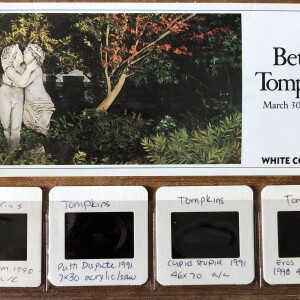 Bet
Tompk
March 30
WHITE CO
kins
1990
a/c
Tompkins
Putti Dispute 1991
7x30 acrylic/saw
Tompkins
Cupid Stupid 1991
46x70 a/c
Tom
Eros
1990 4